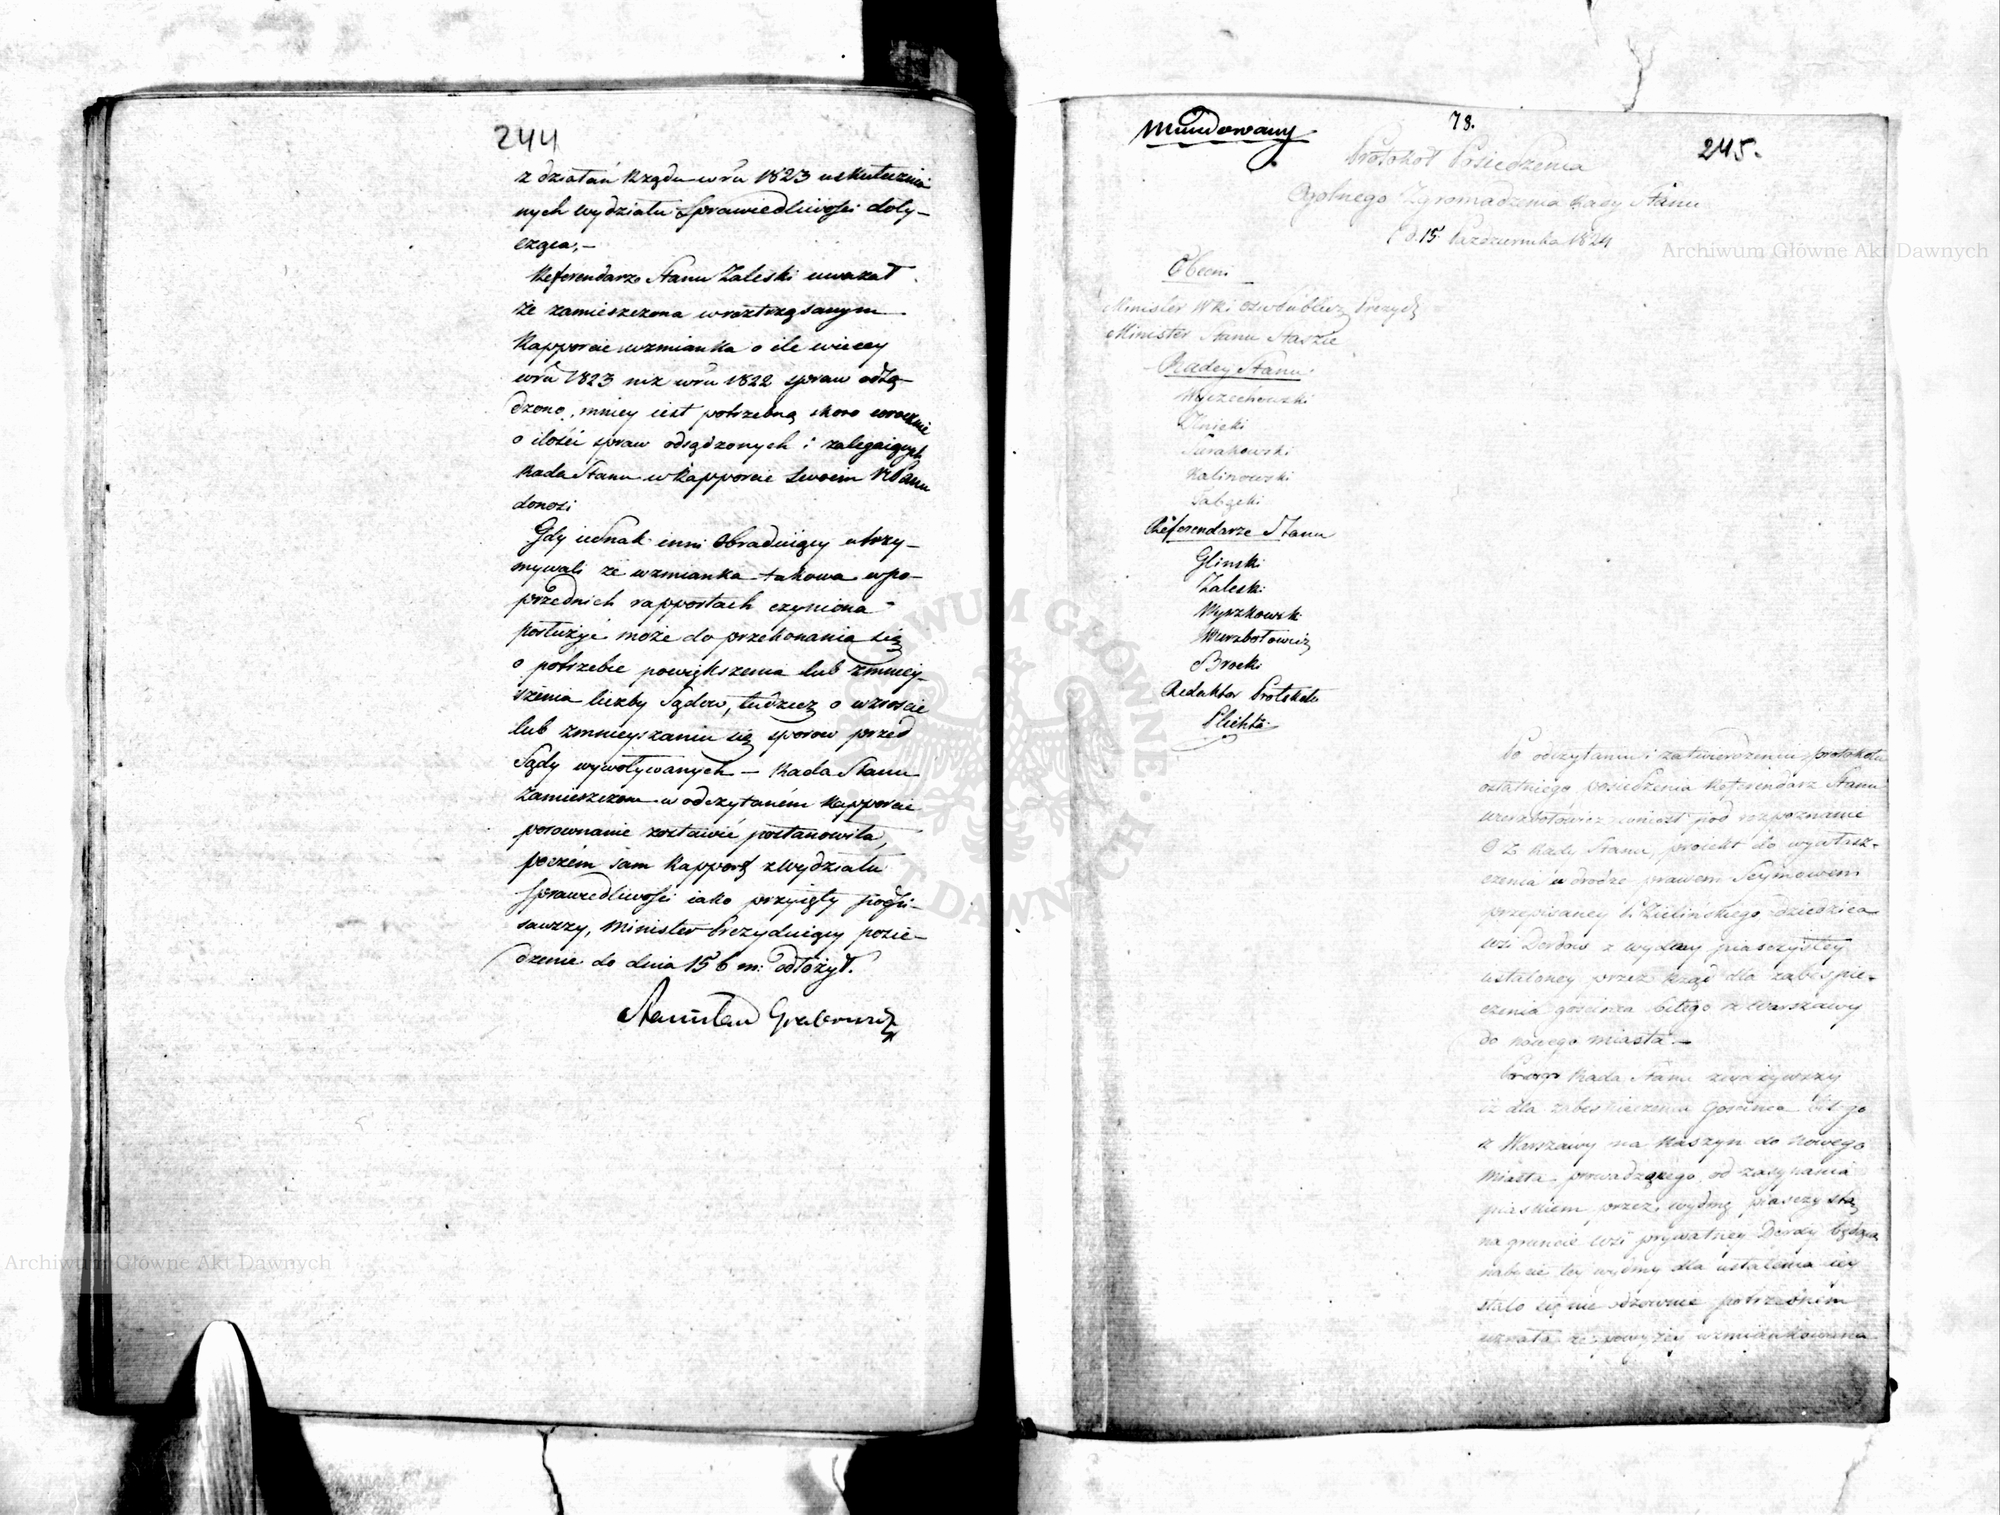 244
z działań Rządu w ru 1823 uskutecznio
nych wydziału Sprawiedliwości doty-
cząca,-
Referendarz Stanu Zaleski uważał
że zamieszczona w roztrząsanym
Rapporcie wzmianka o ile więcey
w ru 1823 niż w ru 1822 spraw odsą-
dzono, mniey iest potrzebną skoro corocznie
o ilości spraw odsądzonych i zalegaiących
Rada Stanu w Rapporcie swoim NPanu
donosi
Gdy iednak inni Obraduiący utrzy-
mywali że wzmianka takowa w po-
przednich rapportach czyniona
posłużyć może do przekonania się
o potrzebie powiększenia lub zmniey-
szenia liczby Sądów, tudzież o wzroście
lub zmnieyszaniu się sporow przed
Sądy wywoływanych - Rada Stanu
zamieszczone w odczytaném Rapporcie
porownanie zostawić postanowiła,
poczém sam Rapport z wydziału
Sprawiedliwości iako przyięty podpi-
sawszy, Minister Prezyduiący posie-
dzenie do dnia 15 b m: odłożył.
Stanisław Grabowski
Mundowany
78.
245.
Protokół Posiedzenia
Ogolnego Zgromadzenia Rady Stanu
d. 15 Października 1824
Obecni
Minister Stanu Staszic
Radcy Stanu
Woźnicki
Tarakowski
Kalinowski
Referendarze Stanu
Glinski
Zaleski
Wyszkowski
Wierzbołowicz
Brocki
Redaktor Protokołu
Plichta
Po odczytaniu i zatwierdzeniu protokołu
ostatniego posiedzenia Referendarz Stanu
Wierzbołowicz wniosł pod rozpoznanie
O Z Rady Stanu, proiekt do wywłasz-
czenia w drodze prawem Seymowem
przepisaney P. Zielińskiego dziedzica
wsi Derdow z wydmy piasczystey
ustaloney przez Rząd dla zabespie-
czenia gościńca bitego z Warszawy
do nowego miasta -
Rada Stanu zważywszy
iż dla zabespieczenia Gościńca bitego
z Warszawy na Raszyn do nowego
miasta prowadzącego, od zasypania
piaskiem przez wydmę piasczystą
na gruncie wsi prywatney Derdy będącą
nabycie tey wydmy dla ustalenia iey
stało się nieodzownie potrzebnem
uznała że powyżey wzmiankowana
Archiwum Główne Akt Dawnych
Archiwum Główne Akt Dawnych
ARCHIWUM GŁÓWNE AKT DAWNYCH